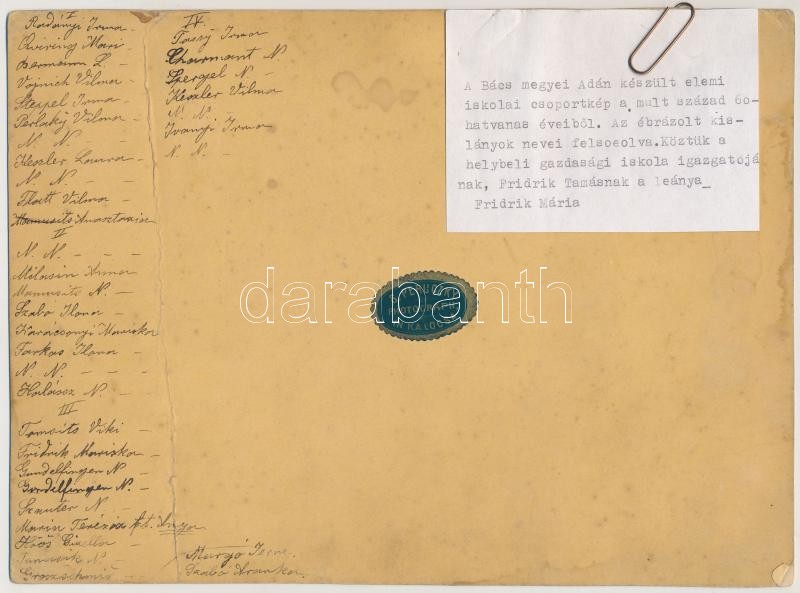 I
Radányi Irma
Quiring Mari
Bermann L. -
Vojnich Vilma
Stespel Irma -
Perlaky Vilma
N. N. - -
Keszler Laura
N. N. - -
Flatt Vilma -
Anasztazia
II
N. N. - - -
Milasin Anna
Mamusits N. -
Szabó Ilona -
Karácsonyi Mariska
Farkas Ilona -
N. N. - - -
Halász N. -
III
Tomsits Viki -
Fridrik Mariska
Gundelfingen N -
Gundelfingen N. -
Szauter N. -
Maria Terézia Anya
Hoós Gizella -
N. -
IV
Tassy Irma
Charmant N.
Spergel N. -
Keszler Vilma
N. N. -
Ivanyi Irma
N. N. -
Margó Irene
Szabó Aranka
A Bács megyei Adán készült elemi
iskolai csoportkép a mult század 60-
hatvanas éveiből. Az ébrázolt kis-
lányok nevei felsoeolva.Köztük a
helybeli gazdasági iskola igazgatojá
nak, Fridrik Tamásnak a leánya_
Fridrik Mária
darabanth
KALOCSA